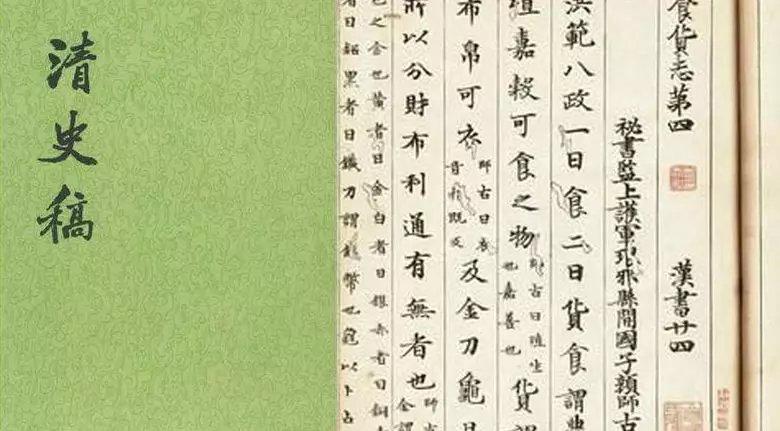 清史稿
食貨志第四 漢書廿四
秘書監上護軍琅邪縣開國子顏師古
洪範八政一曰食二曰貨食謂農
殖嘉穀可食之物師古曰殖生也嘉善也貨
布帛可衣師古曰衣音於既反及金刀龜貝
所以分財布利通有無者也師古金謂
色之金也黃者曰金白者曰銀赤者曰銅
者曰鉛黑者曰鐵刀謂錢幣也龜以卜占